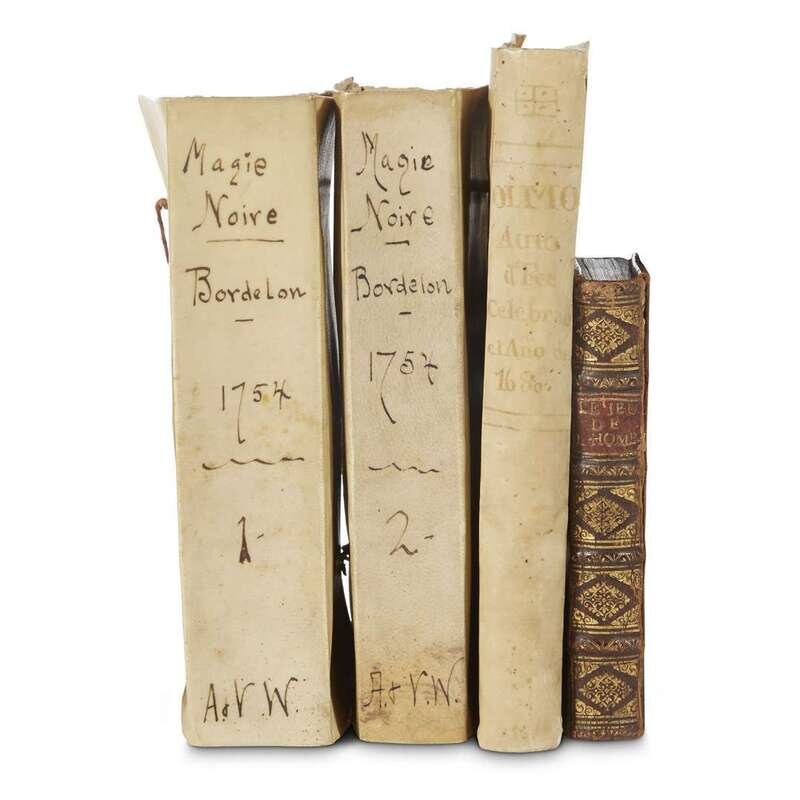 Magie
Noire
Bordelon
1754
1
A & V. W.
Magie
Noire
Bordelon
1754
2
A. & V. W.
OLMO
Auto
d Fee
Celebra
el Ano
LE JEU
DE
HOM